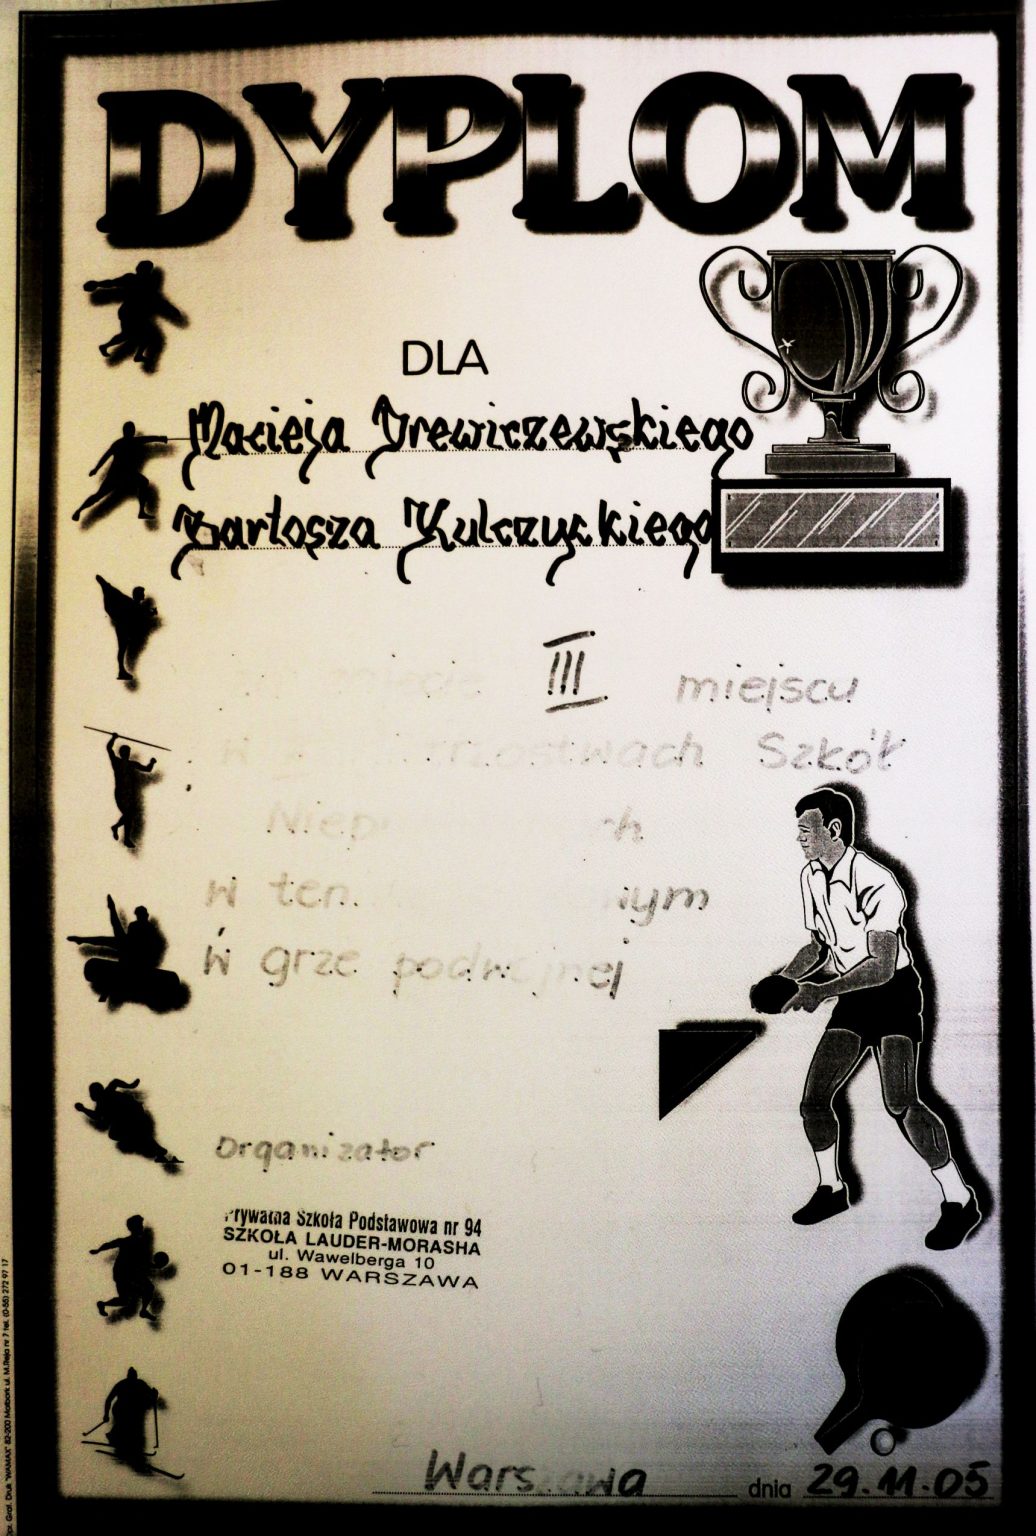 DYPLOM
DLA
Macieja Drewiczewskiego
Bartosza Kulczyckiego
III miejscu
w Szkół
w
w grze podwójnej
Organizator
Prywatna Szkoła Podstawowa nr 94
SZKOŁA LAUDER-MORASHA
ul. Wawelberga 10
01-188 WARSZAWA
Warszawa dnia 29.11.05
Graf. Druk "WAMAX" 82-200 Malbork ul. M.Reja nr 7 tel. (0-55) 272 97 17